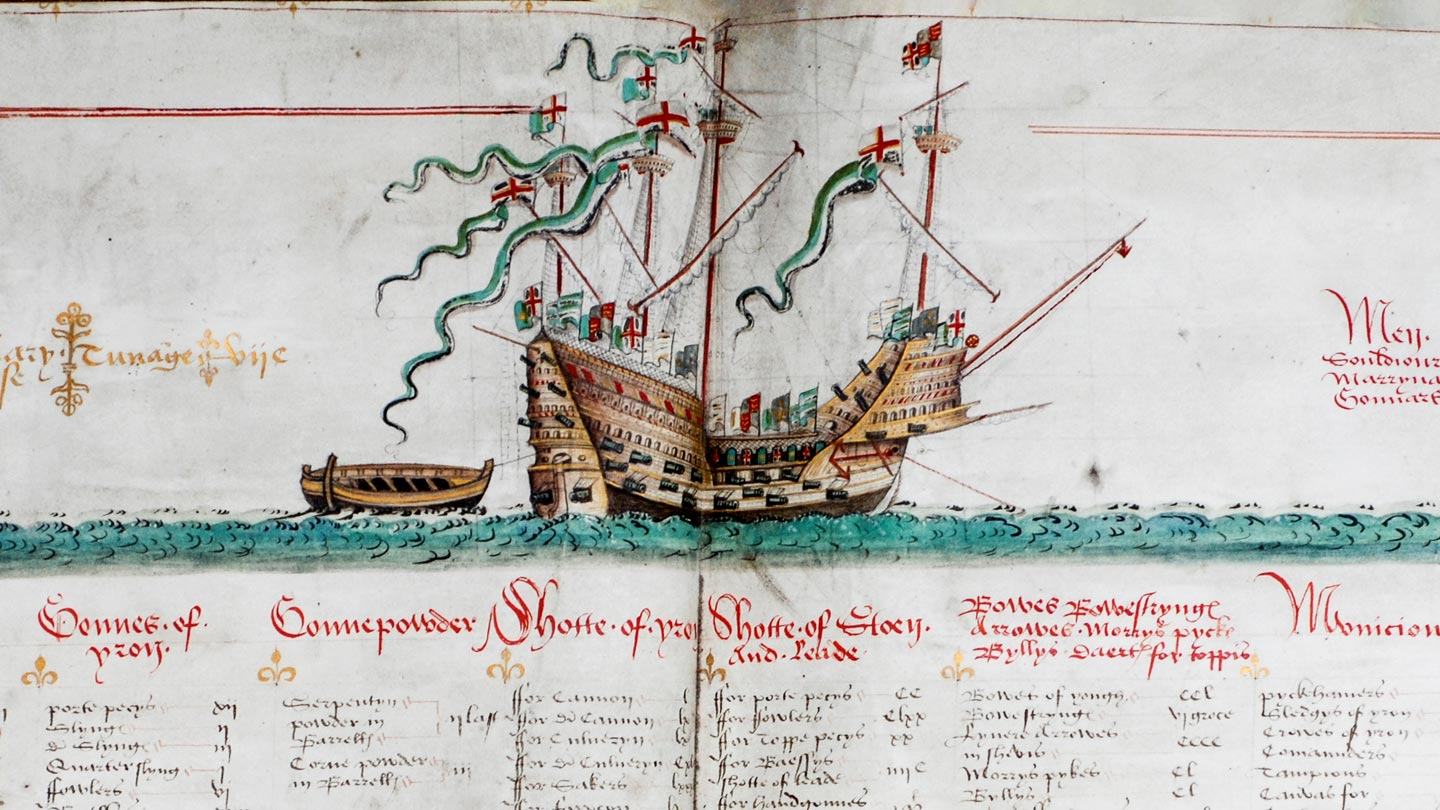 Tunage vijc
Men
Souldiour
Marryna
Gonnars
Gonnes of
yron
Gonnepowder
Shotte of yro
Shotte of Stoen
and leade
Bowes Bowestryng
Arrowes Morrys pyck
Byllys Daerts for toppis
Monicion
porte pecys xij
Slyng ij
d Slyng iij
Quarter slyng j
ffowlers vj
Serpentyn
powder in
Barrells ij last
Corne powder
in Barrells iij
ffor Cannon
ffor d Cannon
ffor Culveryn
ffor d Culveryn
ffor Sakers
ffor porte pecys CC
ffor ffowlers Clxx
ffor Toppe pecys xx
ffor Baessys
shotte of leade iiij C
ffor handgonnes
Bowes of yough CCl
Bowestryng vj groce
Lyvere Arrowes
in shevis CCCC
Morrys pykes Cl
Byllys Cl
pyckhamers
Sledgys of yron
Crowes of yron
Comaunders
Tampions
Canvas for